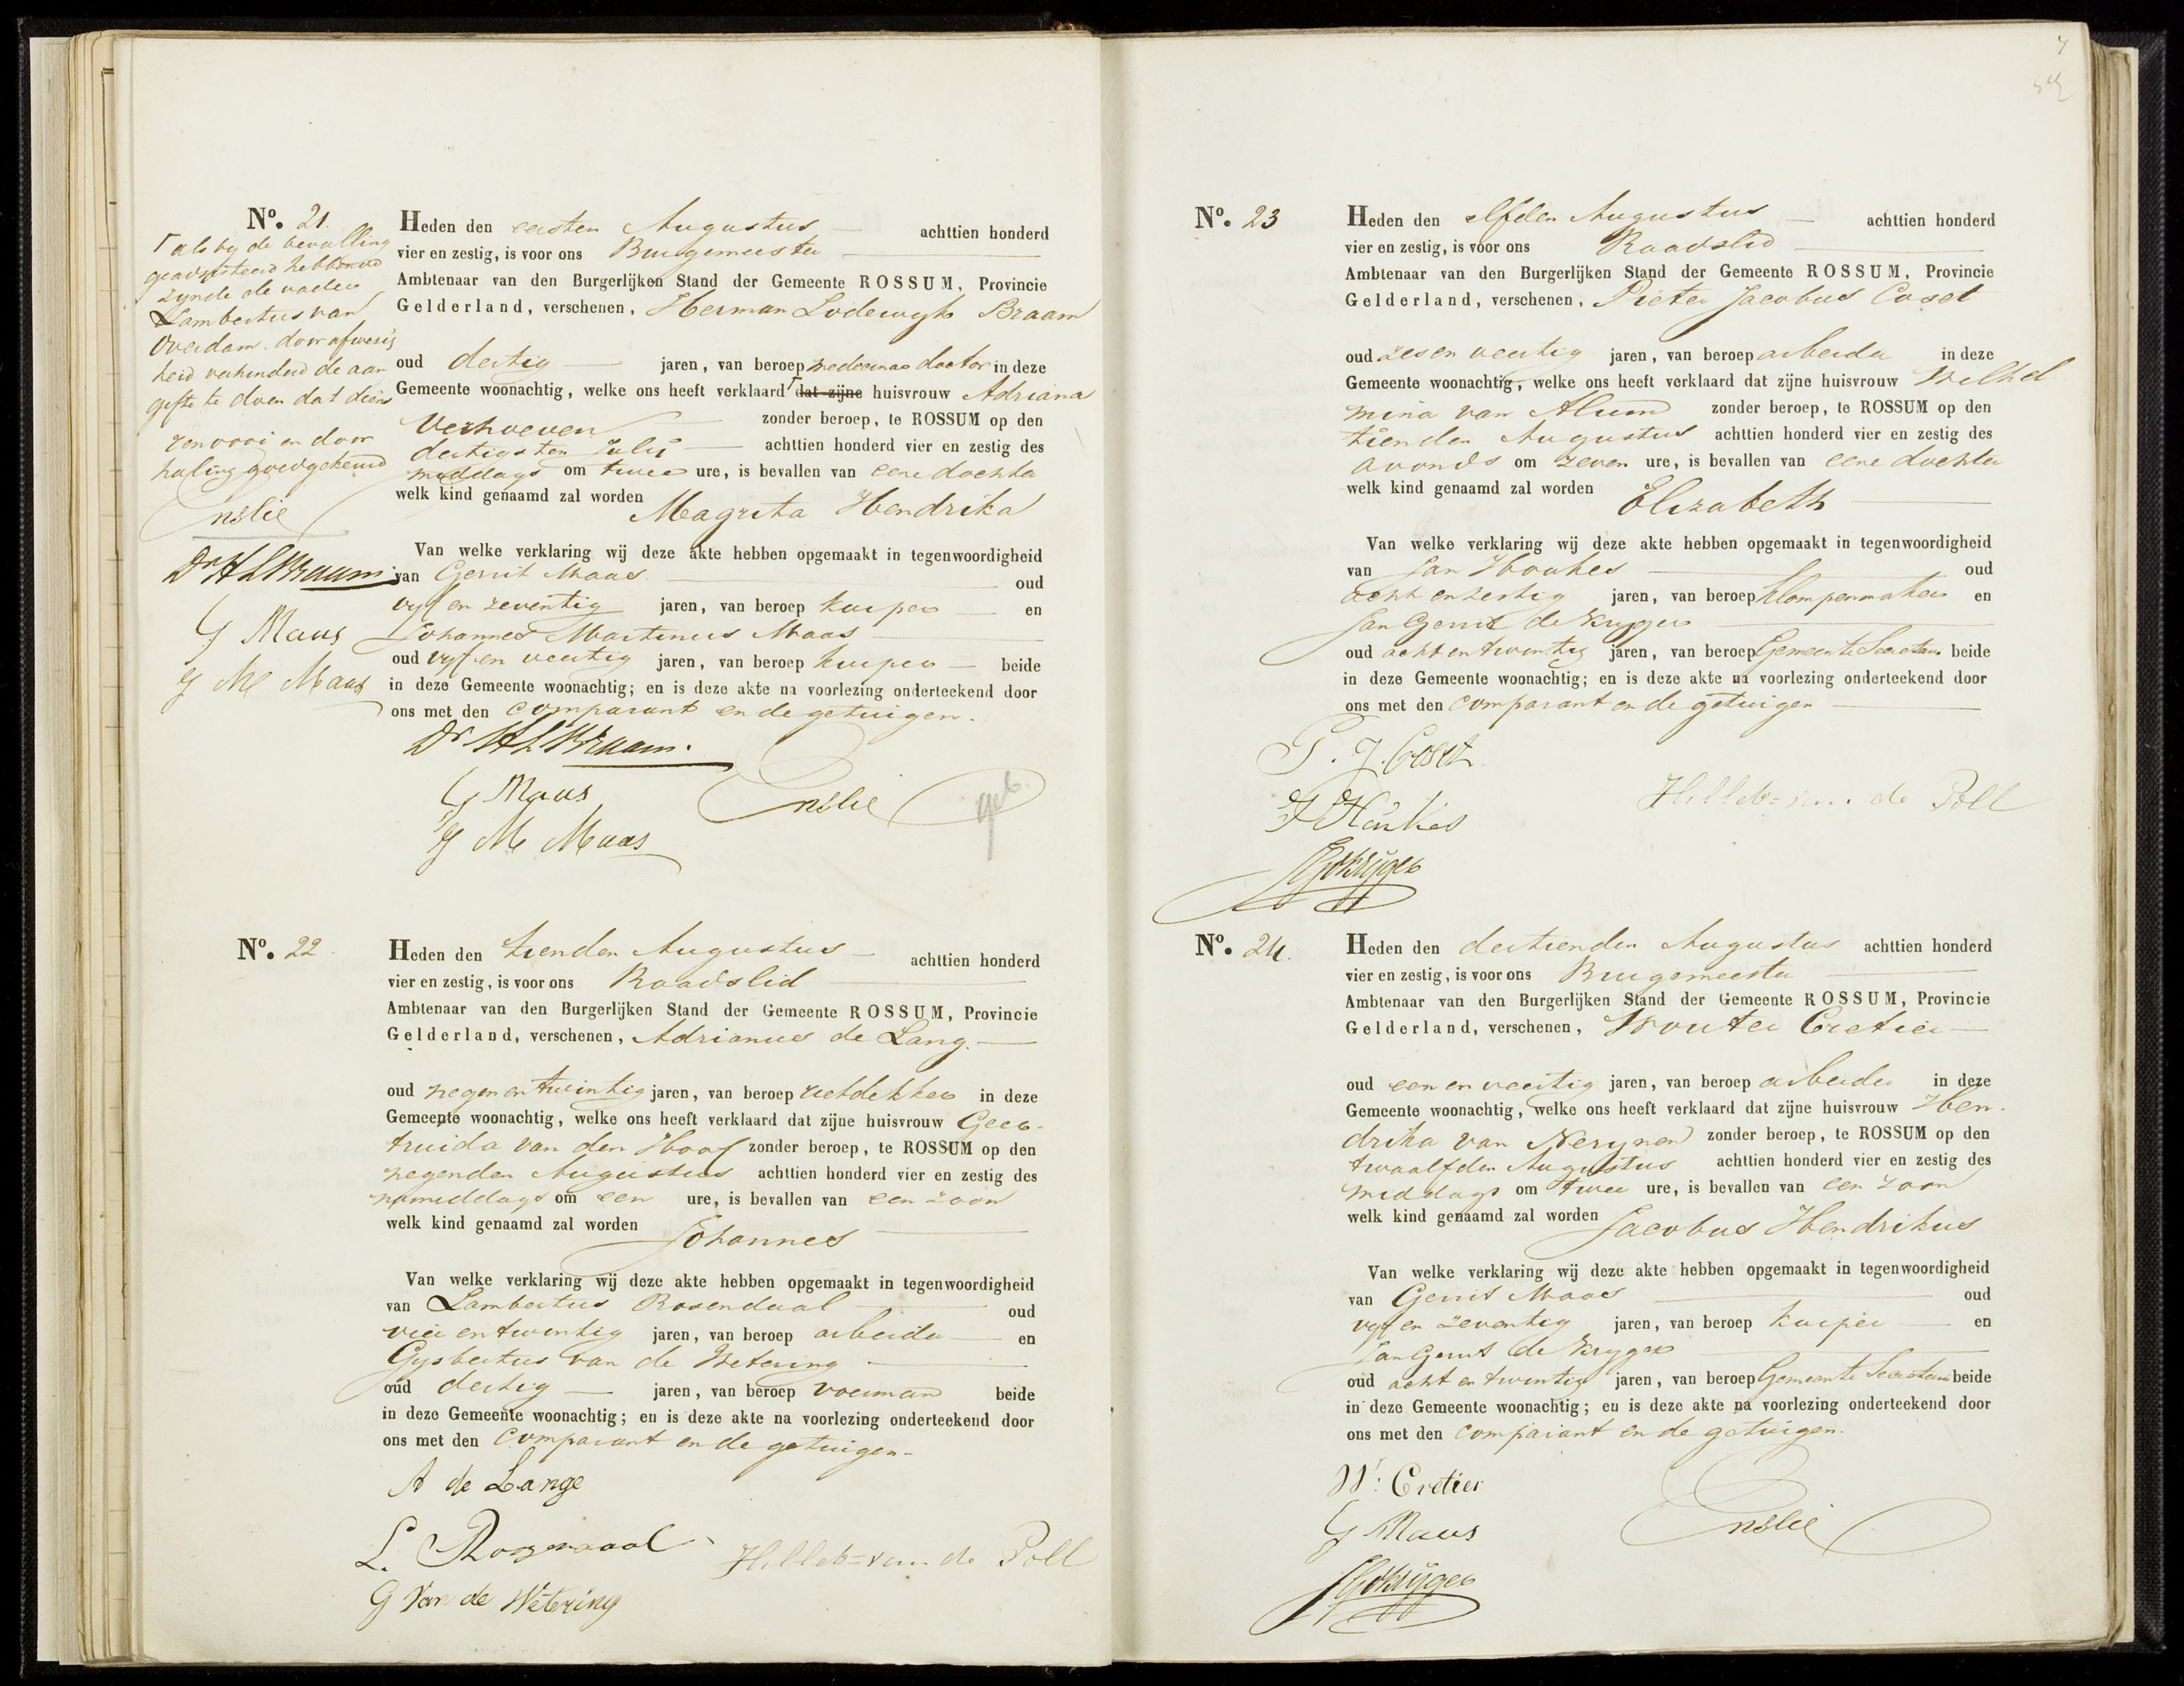 No. 21.
┌ als by de bevalling
geadsisteerd hebbende
zynde de vader
Lambertus van
Overdam. door afwezig
heid verhinderd de aan
gifte te doen dat diens
renvooi en door
haling goedgekeurd
Enslie
Dr H L Braam.
G Maas
J M Maas
Heden den eersten Augustus — achttien honderd
vier en zestig, is voor ons Burgemeester
Ambtenaar van den Burgerlijken Stand der Gemeente ROSSUM, Provincie
Gelderland, verschenen, Herman Lodewyk Braam
oud dertig — jaren, van beroep medicinae doctor in deze
Gemeente woonachtig, welke ons heeft verklaard ┌ dat zijne huisvrouw Adriana
Verhoeven — zonder beroep, te ROSSUM op den
dertigsten Julij — achttien honderd vier en zestig des
middags om twee ure, is bevallen van eene dochter
welk kind genaamd zal worden
Magrita Hendrika
Van welke verklaring wij deze akte hebben opgemaakt in tegenwoordigheid
van Gerrit Maas — oud
vyf en zeventig jaren, van beroep kuiper — en
Johannes Martinus Maas —
oud vyf en veertig jaren, van beroep kuiper — beide
in deze Gemeente woonachtig; en is deze akte na voorlezing onderteekend door
ons met den comparant en de getuigen.
Dr H L Braam.
G Maas Enslie
J M Maas
No. 22.
Heden den tienden Augustus — achttien honderd
vier en zestig, is voor ons Raadslid
Ambtenaar van den Burgerlijken Stand der Gemeente ROSSUM, Provincie
Gelderland, verschenen, Adrianus de Lang. —
oud negen en twintig jaren, van beroep rietdekker in deze
Gemeente woonachtig, welke ons heeft verklaard dat zijne huisvrouw Geer-
truida van den Hoof zonder beroep, te ROSSUM op den
negenden Augustus achttien honderd vier en zestig des
namiddags om een ure, is bevallen van een zoon
welk kind genaamd zal worden
Johannes —
Van welke verklaring wij deze akte hebben opgemaakt in tegenwoordigheid
van Lambertus Rosendaal — oud
vier en twintig jaren, van beroep arbeider — en
Gysbertus van de Wetering —
oud dertig — jaren, van beroep voerman beide
in deze Gemeente woonachtig; en is deze akte na voorlezing onderteekend door
ons met den comparant en de getuigen-
A de Lange
L. Hilleb= van de Poll
G Van de Wetering
No. 23
Heden den elfden Augustus — achttien honderd
vier en zestig, is voor ons Raadslid —
Ambtenaar van den Burgerlijken Stand der Gemeente ROSSUM, Provincie
Gelderland, verschenen, Pieter Jacobus Coset
oud zes en veertig jaren, van beroep arbeider in deze
Gemeente woonachtig, welke ons heeft verklaard dat zijne huisvrouw Wilhel
mina van Alum zonder beroep, te ROSSUM op den
tienden Augustus achttien honderd vier en zestig des
avonds om zeven ure, is bevallen van eene dochter
welk kind genaamd zal worden
Elizabeth —
Van welke verklaring wij deze akte hebben opgemaakt in tegenwoordigheid
van Jan Houkes — oud
acht en zestig jaren, van beroep klompenmaker en
Jan Gerrit de Kryger —
oud acht en twintig jaren, van beroep Gemeente Secretaris beide
in deze Gemeente woonachtig; en is deze akte na voorlezing onderteekend door
ons met den comparant en de getuigen —
P. J. Coset
J Houkes Hilleb= van de Poll
JGdeKrijger
No. 24.
Heden den dertienden Augustus achttien honderd
vier en zestig, is voor ons Burgemeester —
Ambtenaar van den Burgerlijken Stand der Gemeente ROSSUM, Provincie
Gelderland, verschenen, Wouter Cretier —
oud een en veertig jaren, van beroep arbeider in deze
Gemeente woonachtig, welke ons heeft verklaard dat zijne huisvrouw Hen-
drika van Nerynen zonder beroep, te ROSSUM op den
twaalfden Augustus achttien honderd vier en zestig des
middags om twee ure, is bevallen van een zoon
welk kind genaamd zal worden
Jacobus Hendrikus
Van welke verklaring wij deze akte hebben opgemaakt in tegenwoordigheid
van Gerrit Maas — oud
vyf en zeventig jaren, van beroep kuiper — en
Jan Gerrit de Kryger —
oud acht en twintig jaren, van beroep Gemeente Secretaris beide
in deze Gemeente woonachtig; en is deze akte na voorlezing onderteekend door
ons met den comparant en de getuigen.
W: Cretier
G Maas Enslie
JGdeKrijger